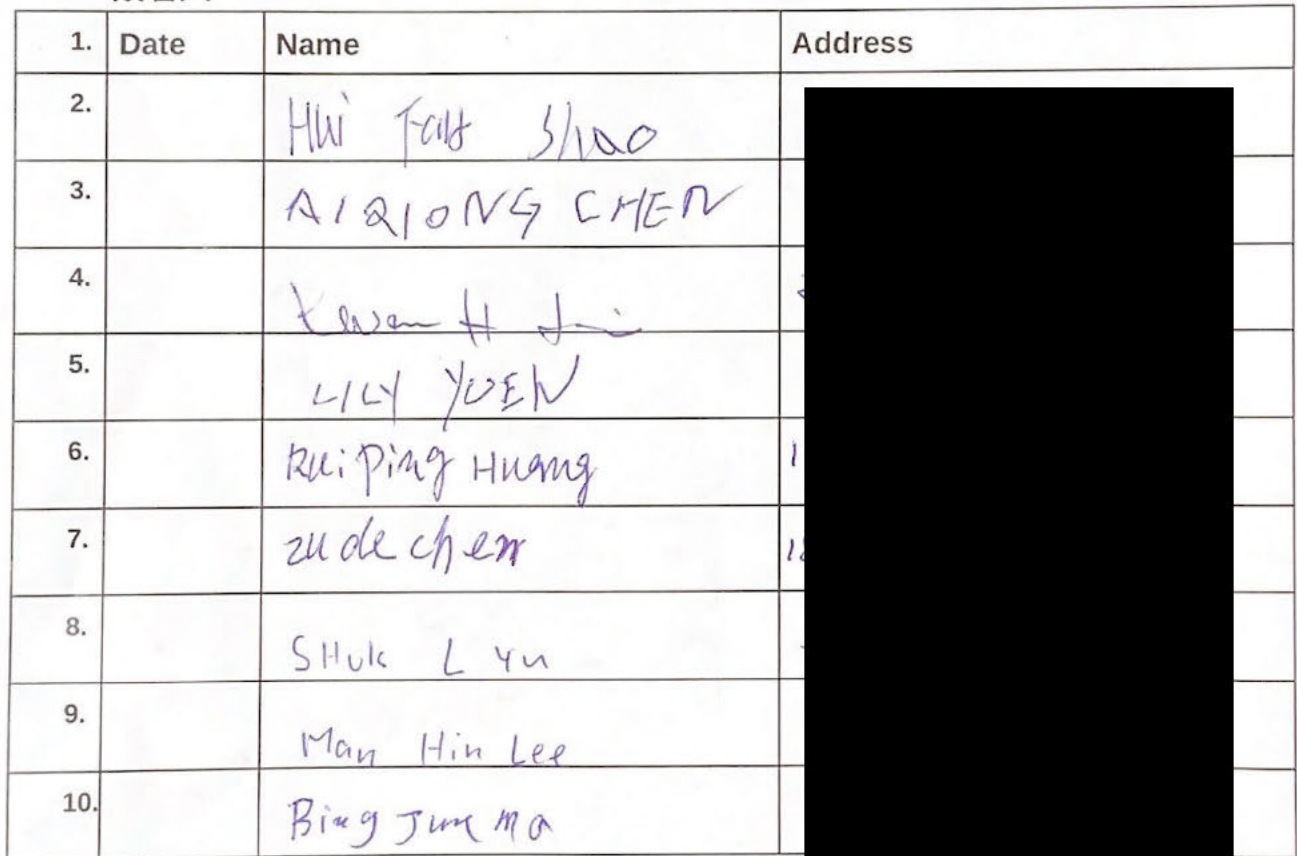 1. Date Name Address
2. Hui Shao
3. AIQIONG CHEN
4. Kwan H
5. LILY YUEN
6. Ruiping Huang
7. zude chen
8. SHuk L Yu
9. Man Hin Lee
10. Bing Jun Ma